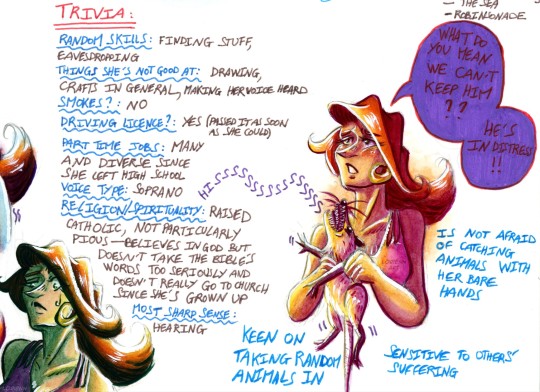 TRIVIA:
RANDOM SKILLS: FINDING STUFF,
EAVESDROPPING
THINGS SHE'S NOT GOOD AT: DRAWING,
CRAFTS IN GENERAL, MAKING HER VOICE HEARD
SMOKES?: NO
DRIVING LICENCE?: YES (PASSED IT AS SOON
AS SHE COULD)
PART TIME JOBS: MANY
AND DIVERSE SINCE
SHE LEFT HIGH SCHOOL
VOICE TYPE: SOPRANO
RELIGION/SPIRITUALITY: RAISED
CATHOLIC, NOT PARTICULARLY
PIOUS — BELIEVES IN GOD BUT
DOESN'T TAKE THE BIBLE'S
WORDS TOO SERIOUSLY AND
DOESN'T REALLY GO TO CHURCH
SINCE SHE'S GROWN UP
MOST SHARP SENSE:
HEARING
— THE SEA
WHAT DO
YOU MEAN
WE CAN'T
KEEP HIM
??
HE'S
IN DISTRESS
!!
HISSSSSSSSSSSSSSS
IS NOT AFRAID
OF CATCHING
ANIMALS WITH
HER BARE
HANDS
KEEN ON
TAKING RANDOM
ANIMALS IN
SENSITIVE TO OTHERS'
SUFFERING